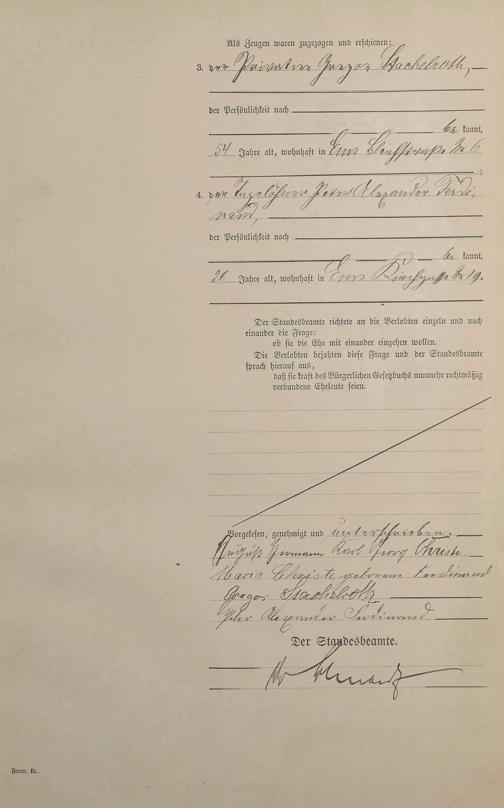 Als Zeugen waren zugezogen und erschienen:
3. der Privatier Gregor Stachelroth,
der Persönlichkeit nach
be kannt,
54 Jahre alt, wohnhaft in Ems Bleichstraße № 6
;
4. der Tagelöhner Peter Alexander Ferdi-
nand,
der Persönlichkeit nach
be kannt,
26 Jahre alt, wohnhaft in Ems Kirchgasse № 19.
Der Standesbeamte richtete an die Verlobten einzeln und nach
einander die Frage:
ob sie die Ehe mit einander eingehen wollen.
Die Verlobten bejahten diese Frage und der Standesbeamte
sprach hierauf aus,
daß sie kraft des Bürgerlichen Gesetzbuchs nunmehr rechtmäßig
verbundene Eheleute seien.
Vorgelesen, genehmigt und unterschrieben.
August Hermann Karl Georg Christe
Maria Christe geborene Ferdinand
Gregor Stachelroth
Peter Alexander Ferdinand
Der Standesbeamte.
Form. B.